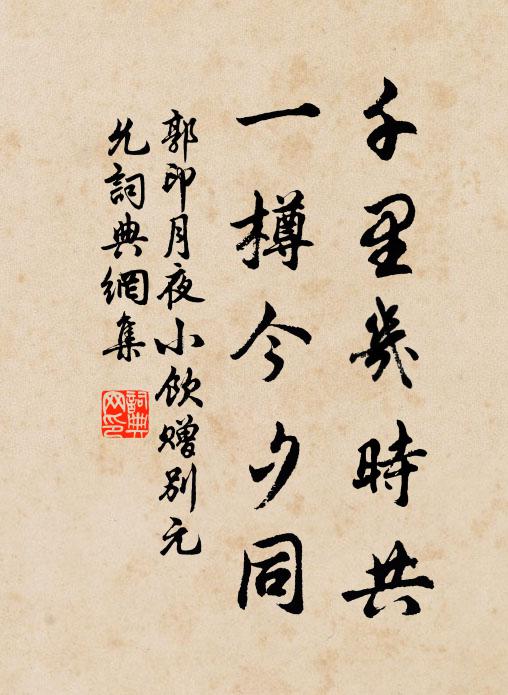 千里幾時共
一樽今夕同
郭印月夜小飲贈別元
允詞典網集
詞典网印